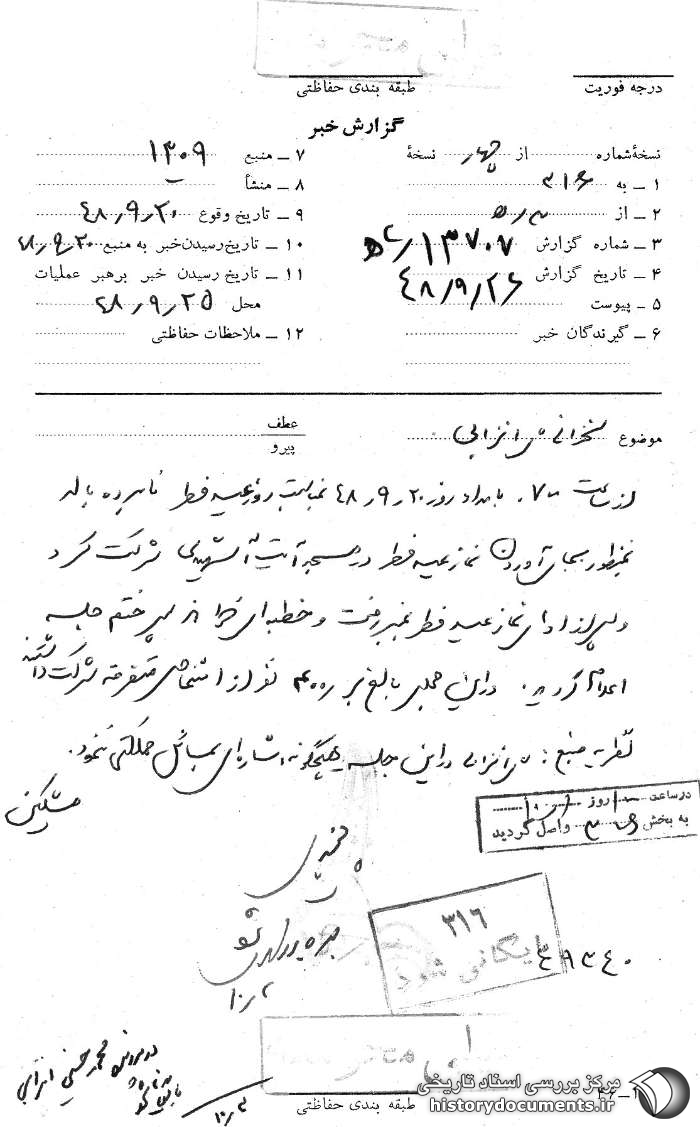 درجه فوریت
طبقه بندی حفاظتی
گزارش خبر
نسخهٔ شماره از چهار نسخهٔ
۱ ــ به ۳۱۶
۲ ــ از
۳ ــ شماره گزارش ۱۳۷۰۷/
۴ ــ تاریخ گزارش ۴۸/۹/۲۶
۵ ــ پیوست
۶ ــ گیرندگان خبر
۷ ــ منبع ۱۳۰۹
۸ ــ منشأ
۹ ــ تاریخ وقوع ۴۸٫۹٫۲۰
۱۰ ــ تاریخ رسیدن خبر به منبع ۴۸٫۹٫۲۰
۱۱ ــ تاریخ رسیدن خبر برهبر عملیات
محل ۴۸٫۹٫۲۵
۱۲ ــ ملاحظات حفاظتی
موضوع سخنرانی انزابی
عطف
پیرو
از ساعت ۷۰۰ بامداد روز ۴۸٫۹٫۲۰ بمناسبت روز عید فطر نامبرده بالا
بمنظور بجای آوردن نماز عید فطر در مسجد آیت اله شهیدی شرکت کرد
و پس از ادای نماز عید فطر بمنبر رفت و خطبه‌ای قرا از سپس ختم جلسه
اعلام گردید. در این مجلس بالغ بر ۴۰۰ نفر از اشخاص متفرقه شرکت داشتند
نظریه منبع: انزابی در این جلسه هیچگونه اشاره‌ای بمسائل مملکتی ننمود.
مشکین
در ساعت روز
به بخش ۳۱۶ واصل گردید
بهره برداری شد
۱۰٫۲
۳۱۶
بایگانی شود
۴۹۳۴۰
در پرونده محمد حسین انزابی
بایگانی شود
۱۰٫۳
طبقه بندی حفاظتی
مرکز بررسی اسناد تاریخی
historydocuments.ir